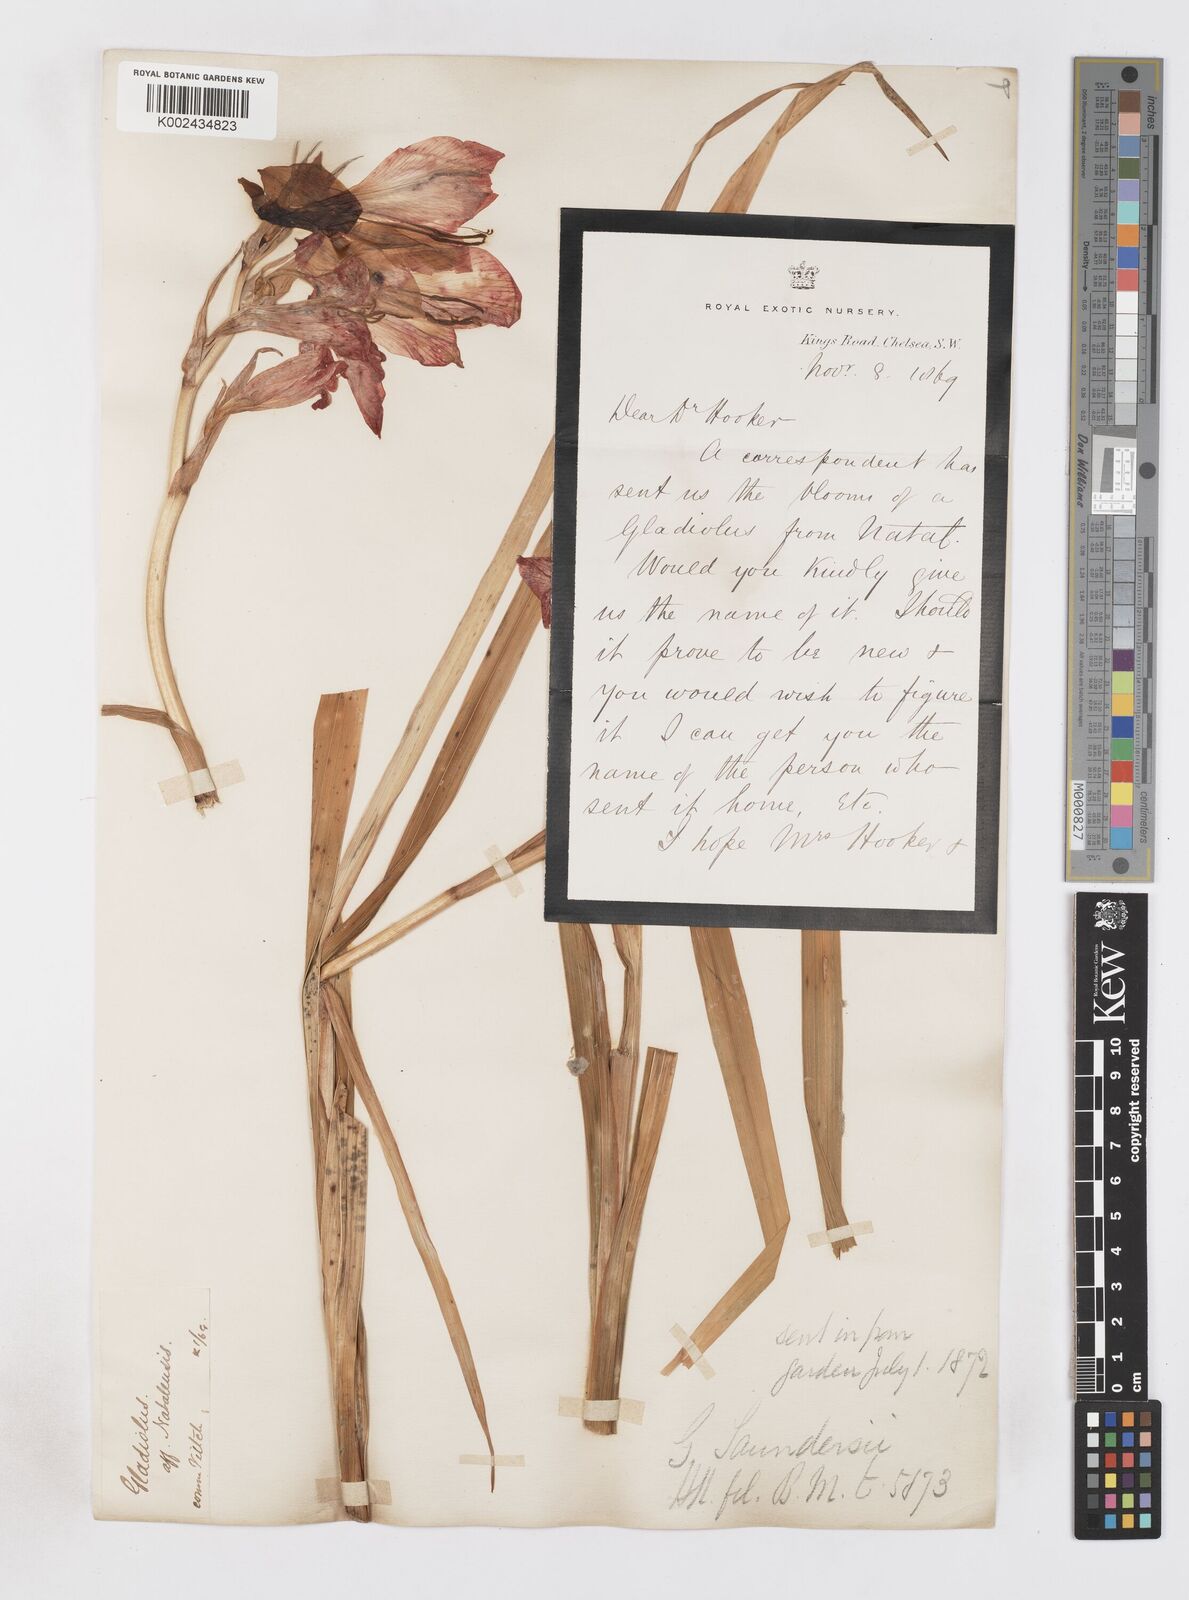 ROYAL BOTANIC GARDENS KEW
K002434823
ROYAL EXOTIC NURSERY.
Kings Road, Chelsea, S.W.
Novr. 8. 1869
Dear Dr Hooker
A correspondent has
sent us the blooms of a
Gladiolus from Natal.
Would you Kindly give
us the name of it. Should
it prove to be new &
you would wish to figure
it I can get you the
name of the person who
sent it home, Etc.
I hope Mrs Hooker &
Gladiolus.
aff. Natalensis.
comm Veitch
sent in from
garden July 1. 1872
G. Saundersii
fil. B. M. t. 5873
inches
centimetres
Density
Don Williams
M000827
Royal Botanic Gardens
Kew
copyright reserved
10
9
8
7
6
5
4
3
2
1
0
cm